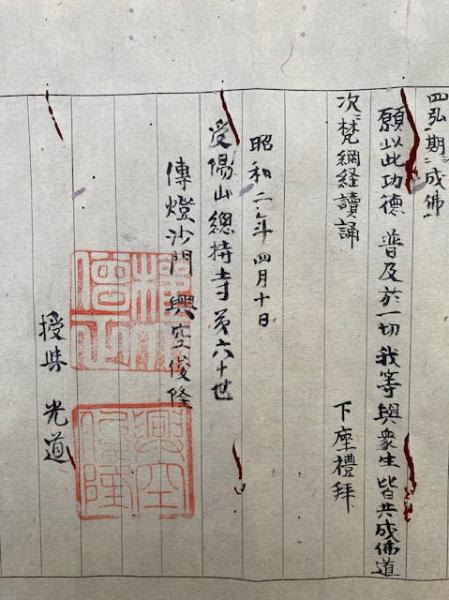 四弘 期ニ成佛
願以此功德 普及於一切 我等與衆生 皆共成佛道
次ニ梵網経讀誦 下座禮拜
昭和二年四月十日
受陽山總持寺第六十世
傳燈沙門 興空俊隆
僧正
興空俊隆
授與 光道